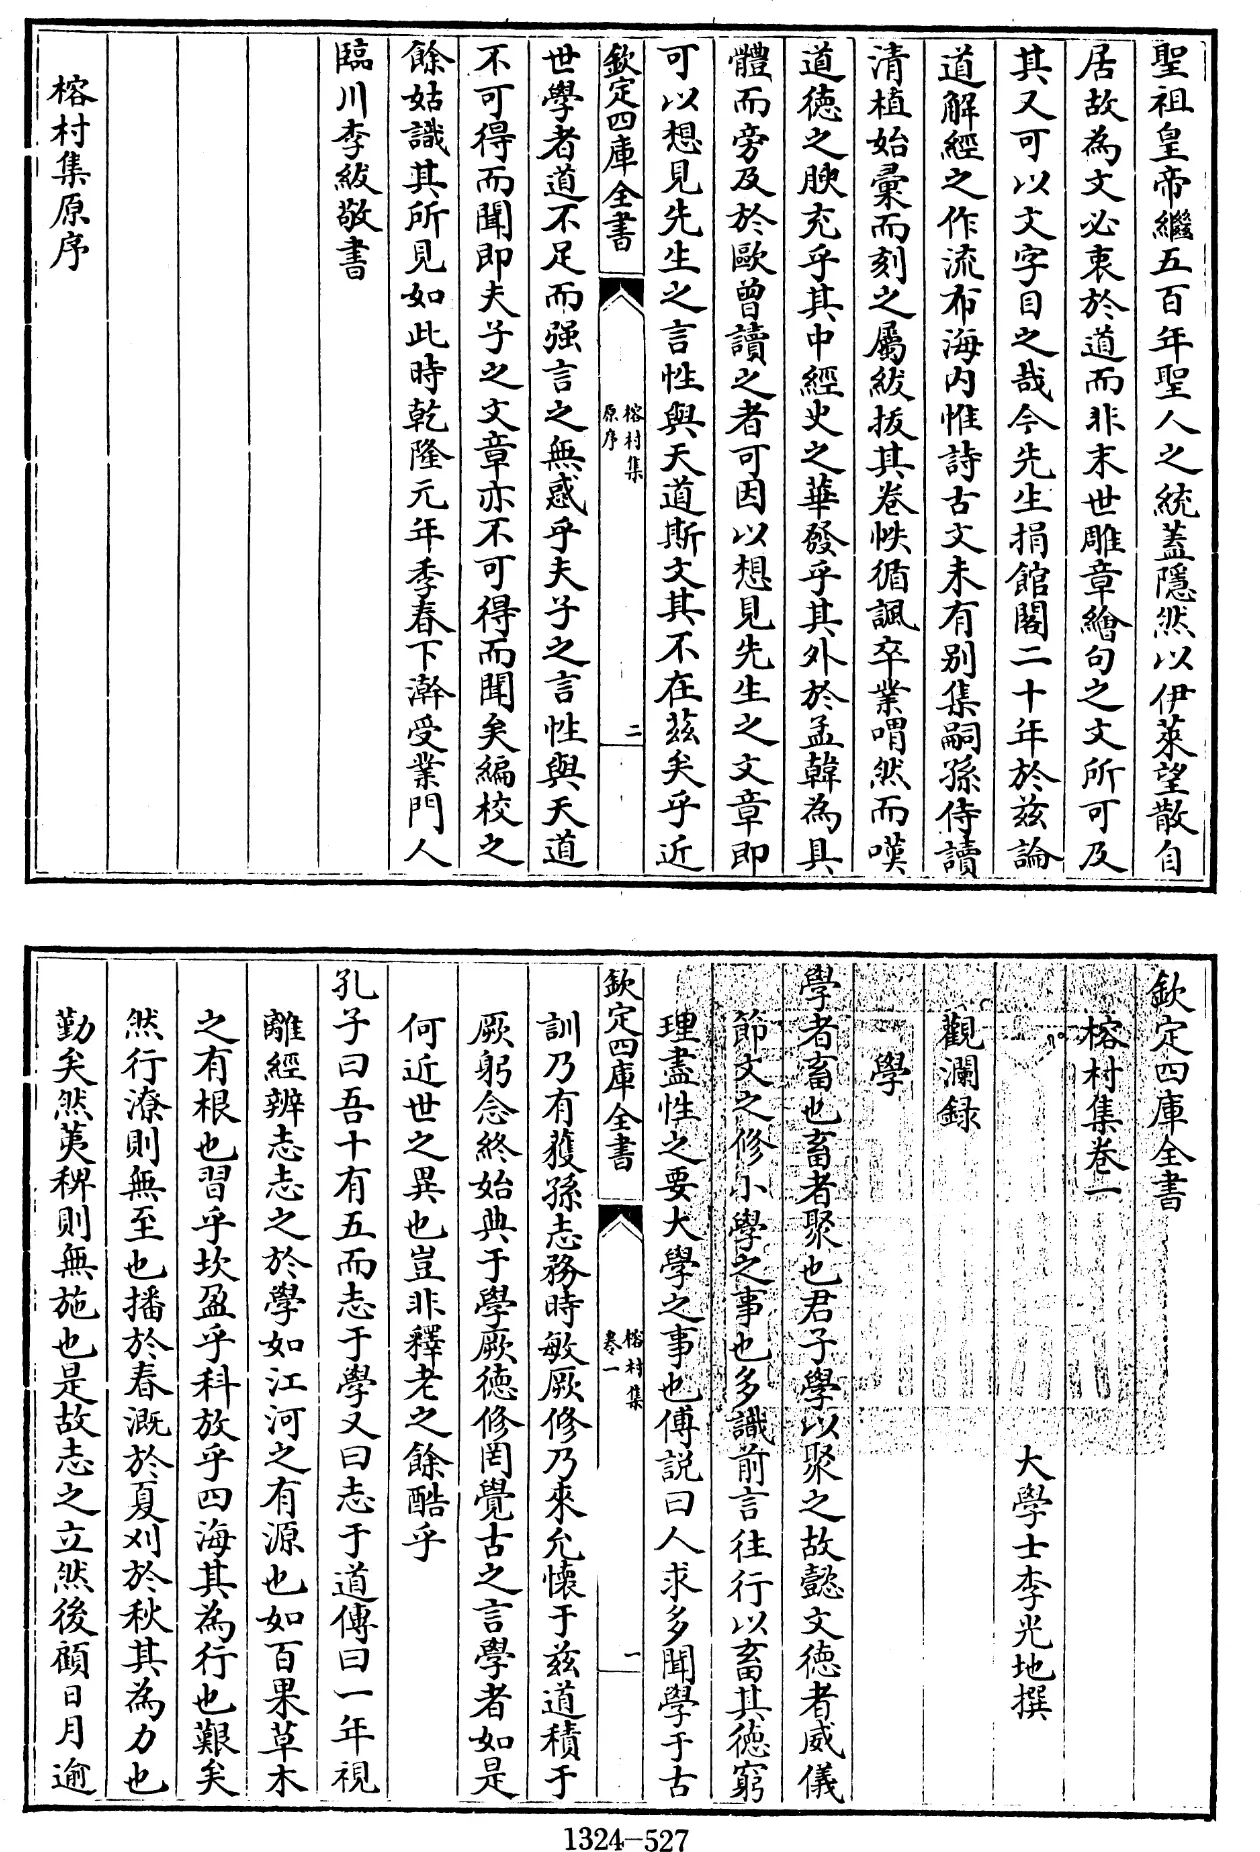 聖祖皇帝繼五百年聖人之統蓋隱然以伊萊望散自
居故為文必衷於道而非末世雕章繪句之文所可及
其又可以文字目之哉今先生捐館閣二十年於兹論
道解經之作流布海内惟詩古文未有别集嗣孫侍讀
清植始彙而刻之屬紱拔其卷帙循諷卒業喟然而嘆
道德之腴充乎其中經史之華發乎其外於孟韓為具
體而旁及於歐曾讀之者可因以想見先生之文章即
可以想見先生之言性與天道斯文其不在兹矣乎近
欽定四庫全書
榕村集
原序
二
世學者道不足而强言之無惑乎夫子之言性與天道
不可得而聞即夫子之文章亦不可得而聞矣編校之
餘姑識其所見如此時乾隆元年季春下澣受業門人
臨川李紱敬書
榕村集原序
欽定四庫全書
榕村集卷一
大學士李光地撰
觀瀾録
學
學者畜也畜者聚也君子學以聚之故懿文德者威儀
節文之修小學之事也多識前言往行以畜其德窮
理盡性之要大學之事也傅説曰人求多聞學于古
欽定四庫全書
榕村集
卷一
一
訓乃有獲孫志務時敏厥修乃來允懷于兹道積于
厥躬念終始典于學厥德修罔覺古之言學者如是
何近世之異也豈非釋老之餘酷乎
孔子曰吾十有五而志于學又曰志于道傳曰一年視
離經辨志志之於學如江河之有源也如百果草木
之有根也習乎坎盈乎科放乎四海其為行也艱矣
然行潦則無至也播於春溉於夏刈於秋其為力也
勤矣然荑稗則無施也是故志之立然後顧日月逾
1324-527